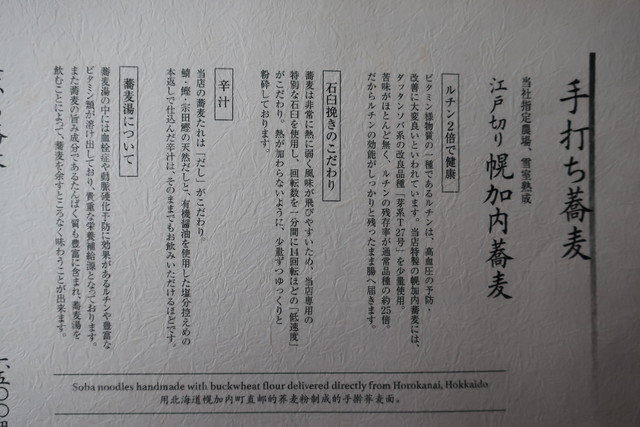 手打ち蕎麦
当社指定農場、雪室熟成
江戸切り幌加内蕎麦
ルチン2倍で健康
ビタミン様物質の一種であるルチンは、高血圧の予防・
改善に大変良いといわれています。当店特製の幌加内蕎麦には、
ダッタンソバ系の改良品種「芽系T27号」を少量使用。
苦味がほとんど無く、ルチンの残存率が通常品種の約25倍。
だからルチンの効能がしっかりと残ったまま腸へ届きます。
石臼挽きのこだわり
蕎麦は非常に熱に弱く風味が飛びやすいため、当店専用の
特別な石臼を使用し、回転数を一分間に14回転ほどの「低速度」
がこだわり。熱が加わらないように、少量ずつゆっくりと
粉砕しております。
辛汁
当店の蕎麦たれは「だし」がこだわり。
鯖・鰹・宗田鰹の天然だしと、有機醤油を使用した塩分控えめの
本返しで仕込んだ辛汁は、そのままでもお飲みいただけるほどです。
蕎麦湯について
蕎麦湯の中には血栓症や動脈硬化予防に効果があるルチンや豊富な
ビタミン類が溶け出しており、貴重な栄養補給源となっております。
また蕎麦の旨み成分であるたんぱく質も豊富に含まれ、蕎麦湯を
飲むことによって、蕎麦を余すところなく味わうことが出来ます。
Soba noodles handmade with buckwheat flour delivered directly from Horokanai, Hokkaido
用北海道幌加内町直邮的荞麦粉制成的手擀荞麦面。